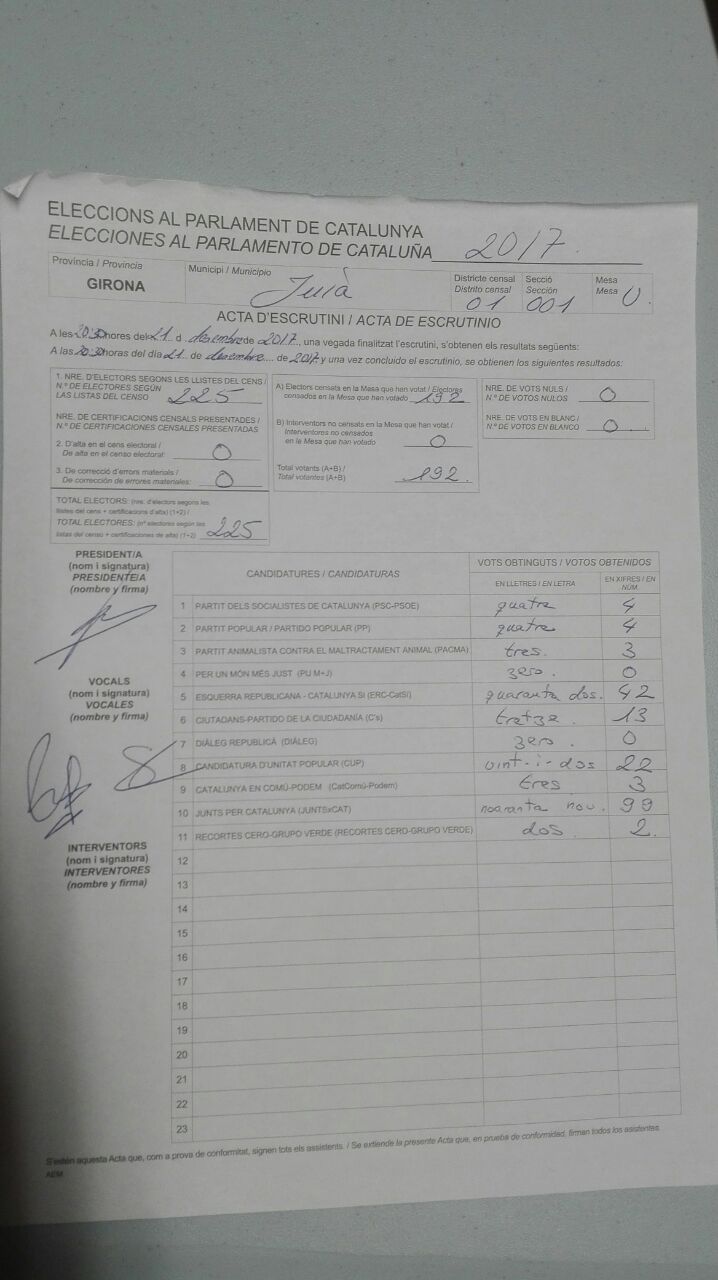 ELECCIONS AL PARLAMENT DE CATALUNYA
ELECCIONES AL PARLAMENTO DE CATALUÑA 2017.
Província / Provincia
GIRONA
Municipi / Municipio
Juià
Districte censal
Distrito censal
01
Secció
Sección
001
Mesa
Mesa U
ACTA D'ESCRUTINI / ACTA DE ESCRUTINIO
A les 20:30 hores del 21 d. desembre de 2017, una vegada finalitzat l'escrutini, s'obtenen els resultats següents:
A las 20:30 horas del día 21 de desembre... de 2017 y una vez concluido el escrutinio, se obtienen los siguientes resultados:
1. NRE. D'ELECTORS SEGONS LES LLISTES DEL CENS /
N.º DE ELECTORES SEGÚN
LAS LISTAS DEL CENSO 225
NRE. DE CERTIFICACIONS CENSALS PRESENTADES /
N.º DE CERTIFICACIONES CENSALES PRESENTADAS
2. D'alta en el cens electoral /
De alta en el censo electoral: 0
3. De correcció d'errors materials /
De corrección de errores materiales: 0
TOTAL ELECTORS: (nre. d'electors segons les
llistes del cens + certificacions d'alta) (1+2) /
TOTAL ELECTORES: (nº electores según las
listas del censo + certificaciones de alta) (1+2) 225
A) Electors censats en la Mesa que han votat / Electores
censados en la Mesa que han votado 192
B) Interventors no censats en la Mesa que han votat /
Interventores no censados
en la Mesa que han votado 0
Total votants (A+B) /
Total votantes (A+B) 192.
NRE. DE VOTS NULS /
N.º DE VOTOS NULOS 0
NRE. DE VOTS EN BLANC /
N.º DE VOTOS EN BLANCO 0
PRESIDENT/A
(nom i signatura)
PRESIDENTE/A
(nombre y firma)
VOCALS
(nom i signatura)
VOCALES
(nombre y firma)
INTERVENTORS
(nom i signatura)
INTERVENTORES
(nombre y firma)
CANDIDATURES / CANDIDATURAS
VOTS OBTINGUTS / VOTOS OBTENIDOS
EN LLETRES / EN LETRA
EN XIFRES / EN NÚM.
1 PARTIT DELS SOCIALISTES DE CATALUNYA (PSC-PSOE) quatre 4
2 PARTIT POPULAR / PARTIDO POPULAR (PP) quatre 4
3 PARTIT ANIMALISTA CONTRA EL MALTRACTAMENT ANIMAL (PACMA) tres. 3
4 PER UN MÓN MÉS JUST (PU M+J) zero. 0
5 ESQUERRA REPUBLICANA - CATALUNYA SÍ (ERC-CatSí) quaranta dos. 42
6 CIUTADANS-PARTIDO DE LA CIUDADANÍA (C's) tretze. 13
7 DIÀLEG REPUBLICÀ (DIÀLEG) zero. 0
8 CANDIDATURA D'UNITAT POPULAR (CUP) vint-i-dos 22
9 CATALUNYA EN COMÚ-PODEM (CatComú-Podem) tres 3
10 JUNTS PER CATALUNYA (JUNTSxCAT) noranta nou. 99
11 RECORTES CERO-GRUPO VERDE (RECORTES CERO-GRUPO VERDE) dos. 2.
12
13
14
15
16
17
18
19
20
21
22
23
S'estén aquesta Acta que, com a prova de conformitat, signen tots els assistents. / Se extiende la presente Acta que, en prueba de conformidad, firman todos los asistentes.